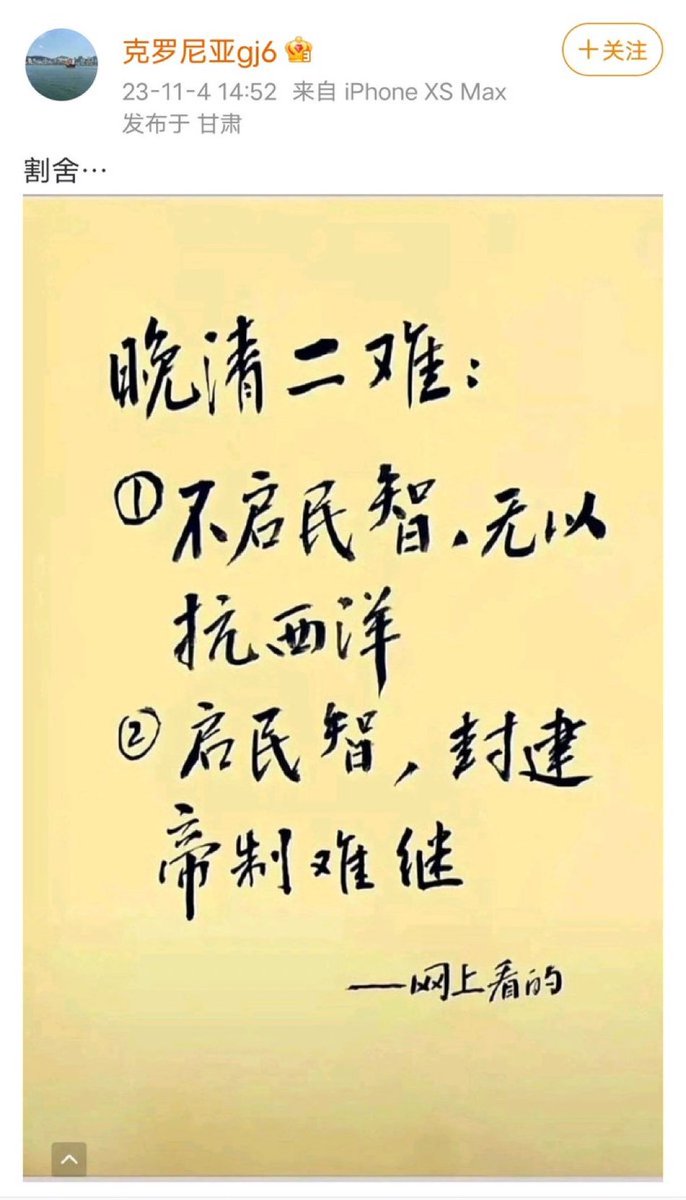 克罗尼亚gj6
+关注
23-11-4 14:52 来自 iPhone XS Max
发布于 甘肃
割舍…
晚清二难：
①不启民智，无以
抗西洋
②启民智，封建
帝制难继
——网上看的